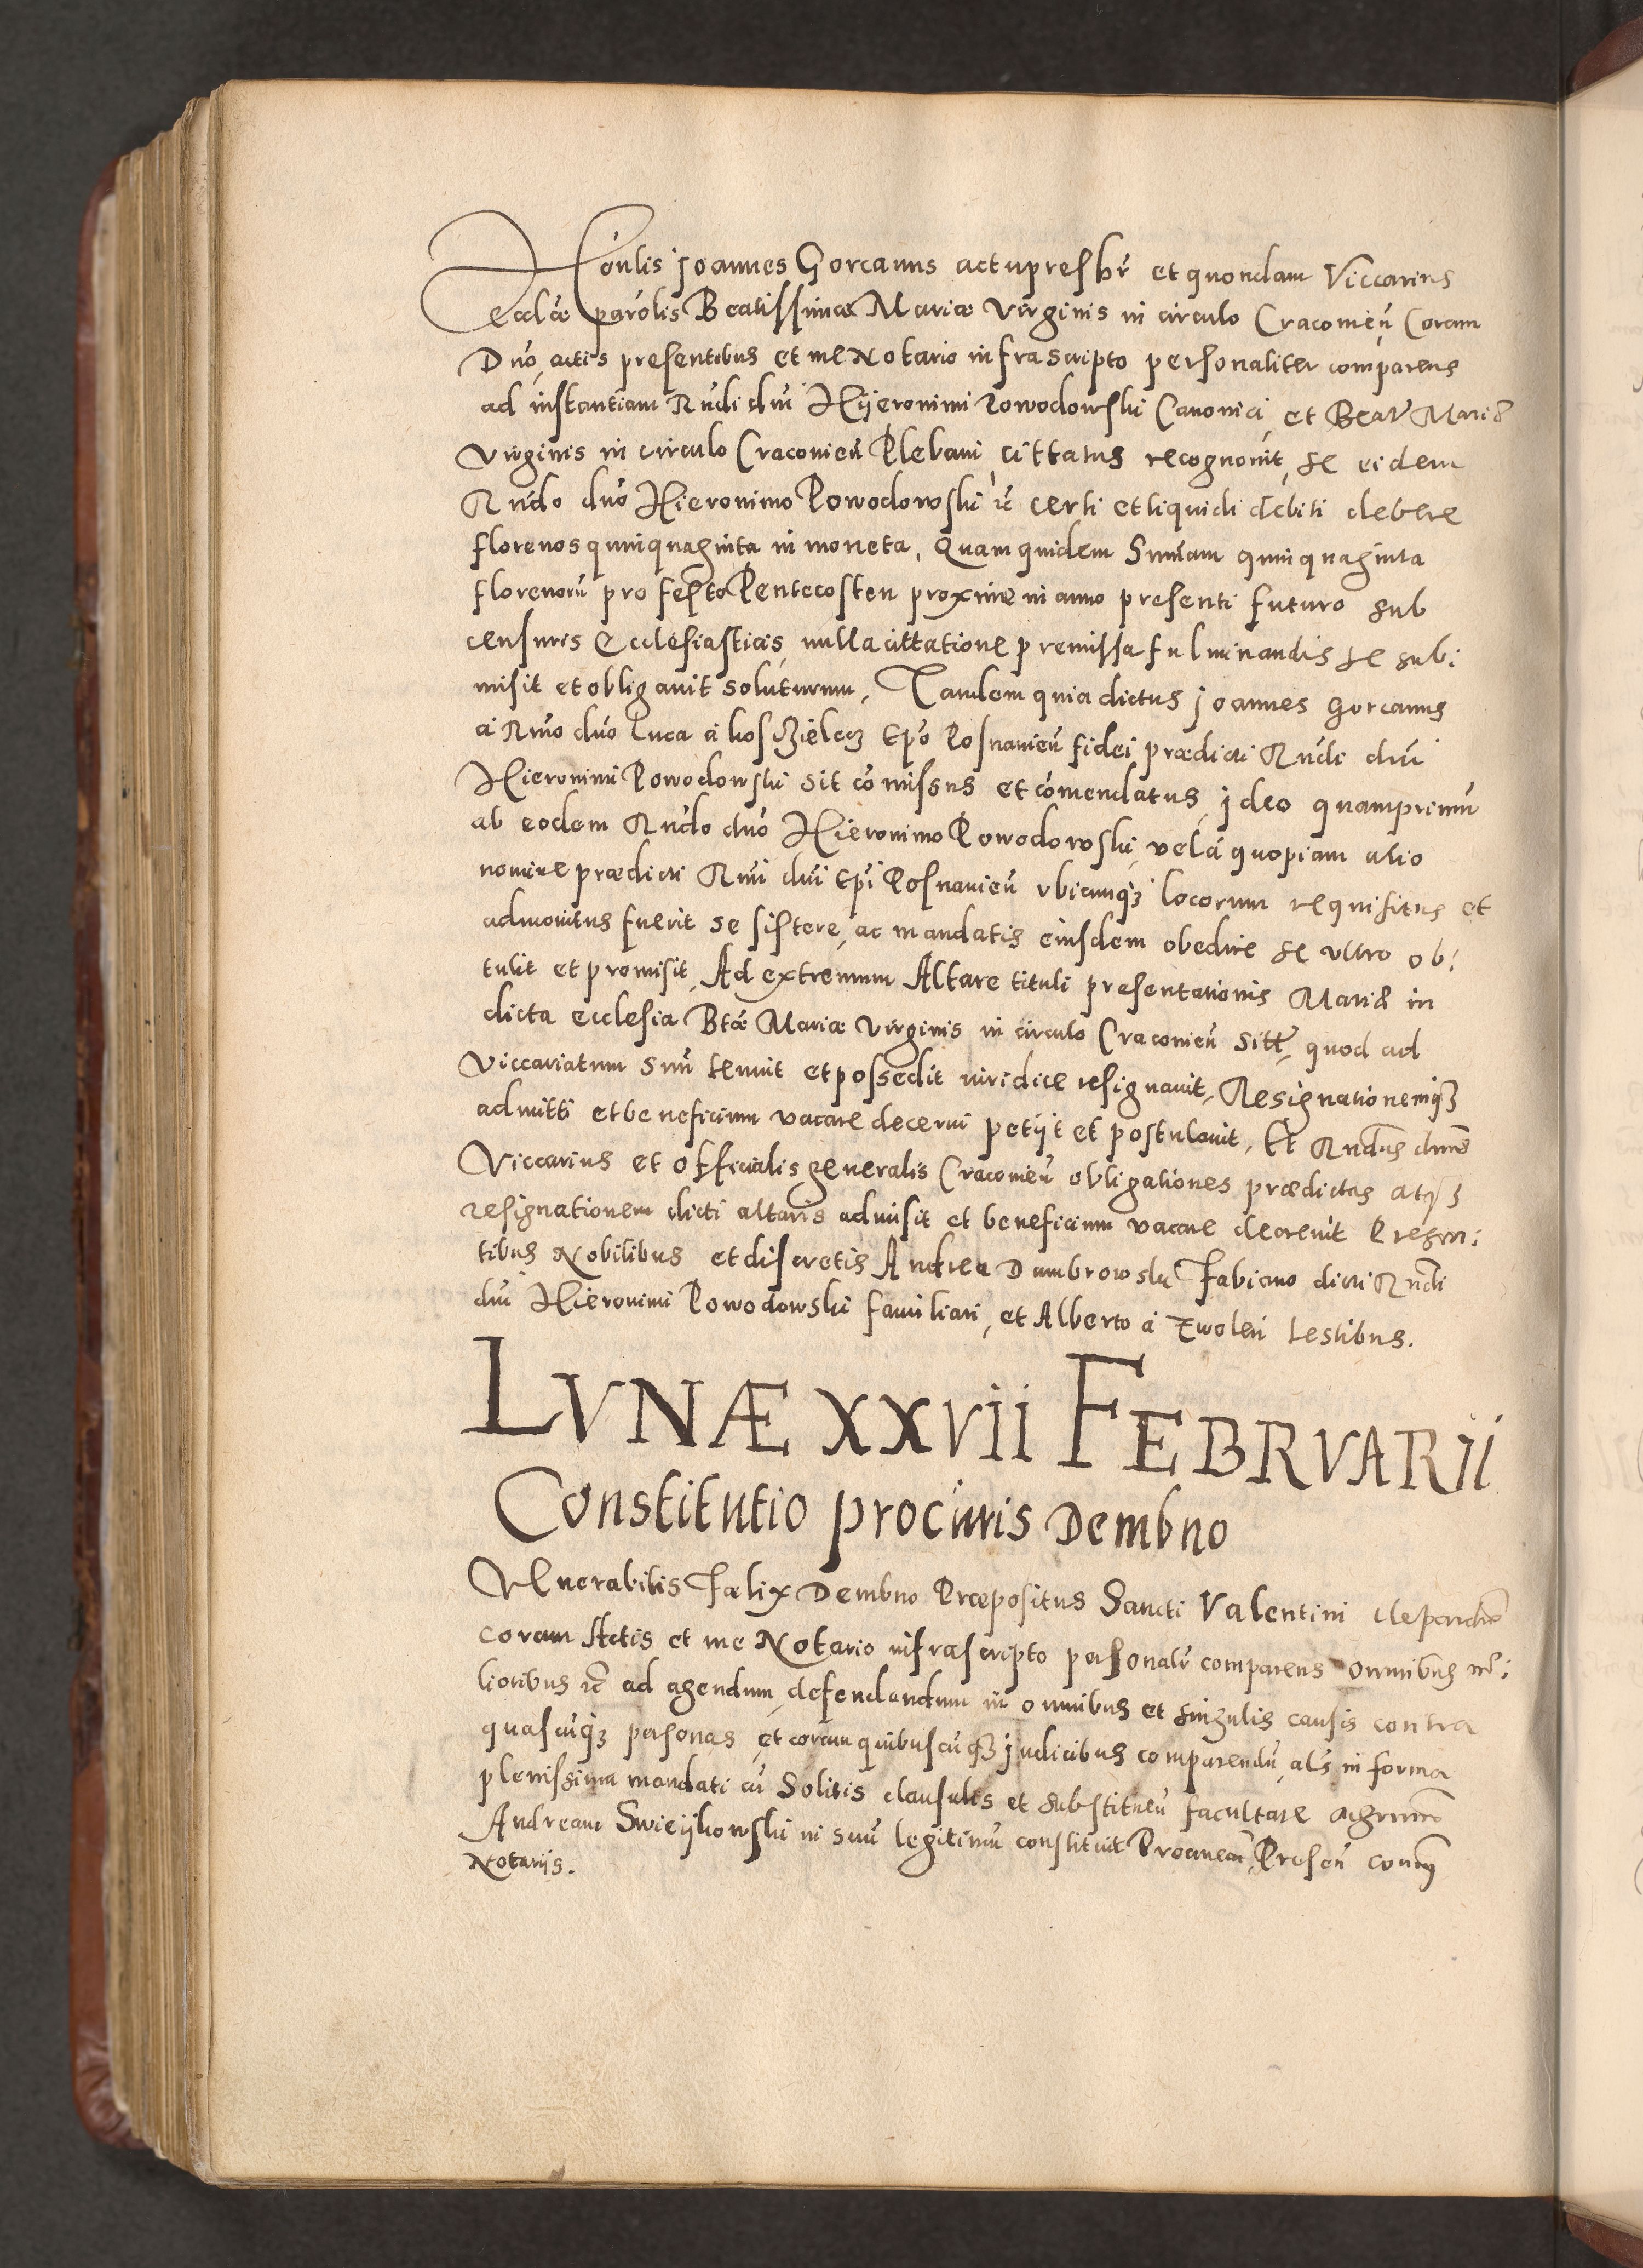 Honlis Joannes Gorcanus actu presbr̃ et quondam Viccarius
ecclæ parolis Beatissimæ Mariæ Virginis in circulo Cracovien̄ Coram
Dno, actis presentibus et me Notario infrascripto personaliter comparens
ad instantiam Rndi dni Hijeronimi Powodowski Canonici, et Beatæ Mariæ
Virginis in circulo Cracovien̄ Plebani, cittatus recognovit, se eidem
Rndo dno Hieronimo Powodowski etc̃ certi et liquidi debiti debere
florenos quinquaginta in moneta, Quam quidem Summam quinquaginta
florenorū pro festo Pentecosten proxime in anno presenti futuro sub
censuris Ecclesiasticis, nulla cittatione premissa fulminandis se subi
misit et obligavit soluturum, Tandem quia dictus Joannes Gorcanus
à Rmo dno Luca à Kosczielecz Epo Posnanien̄ fidei prædicti Rndi dni
Hieronimi Powodowski sit cōmissus et cōmendatus, ideo quamprimū
ab eodem Rndo dno Hieronimo Powodowski, vel à quopiam alio
nomine prædicti Rmi dni Epi Posnanien̄ ubicunq3 locorum requisitus et
admonitus fuerit se sistere, ac mandatis eiusdem obedire se ultro ob:
tulit et promisit, Ad extremum Altare tituli presentationis Mariæ in
dicta ecclesia Btæ Mariæ Virginis in circulo Cracovien̄ sitt̃, quod ad
Viccariatum suū tenuit et possedit iuridice resignavit, Resignationemq3
admitti et beneficium vacare decerni petijt et postulavit, Et Rndus dnus
Viccarius et officialis generalis Cracovien̄ obligationes prædictas atq3
resignationem dicti altaris admisit et beneficium vacare decrevit Presen:
tibus Nobilibus et discretis Andrea Dambrowski Fabiano dicti Rndi
dni Hieronimi Powodowski familiari, et Alberto à Zwolen testibus.
LVNÆ XXVII FEBRVARII
Constitutio procuris Dembno
Venerabilis Fælix Dembno Præpositus Sancti Valentini
coram Actis et me Notario infrascripto personalr̃ comparens omnibus me:
lioribus etc̃ ad agendum, defendendum in omnibus et singulis causis contra
quascūq3 personas, et coram quibuscūq3 Judicibus comparendū, als in forma
plenissima mandati cū Solitis clausulis et substituen̄ facultate
Andream Swieijkowski in suū legitimū constituit Procurem, Presen̄
Notarijs.